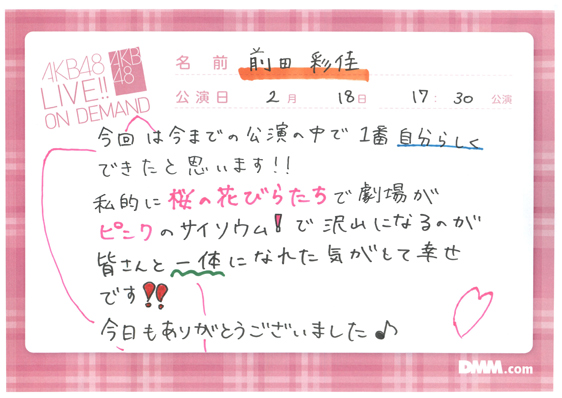 AKB48
LIVE!!
ON DEMAND
AKB
48
名前 前田 彩佳
公演日 2月 18日 17:30 公演
今回は今までの公演の中で1番自分らしく
できたと思います!!
私的に桜の花びらたちで劇場が
ピンクのサイリウム!で沢山になるのが
皆さんと一体になれた気がして幸せ
です!!
今日もありがとうございました♪
DMM.com